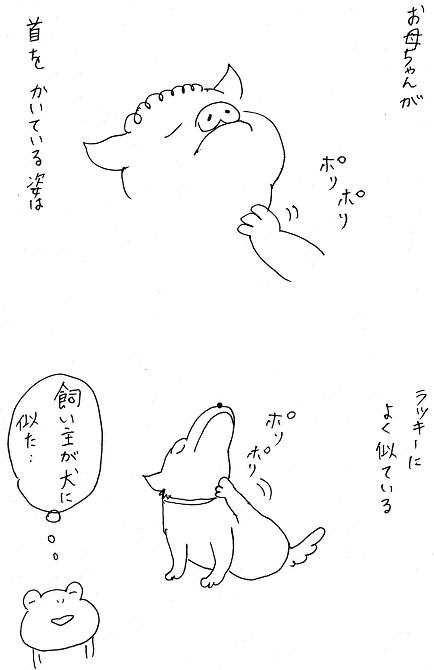 お母ちゃんが
首を かいている 姿は
ポリ
ポリ
ラッキーに
よく似ている
ポリ
ポリ
飼い主が犬に
似た…